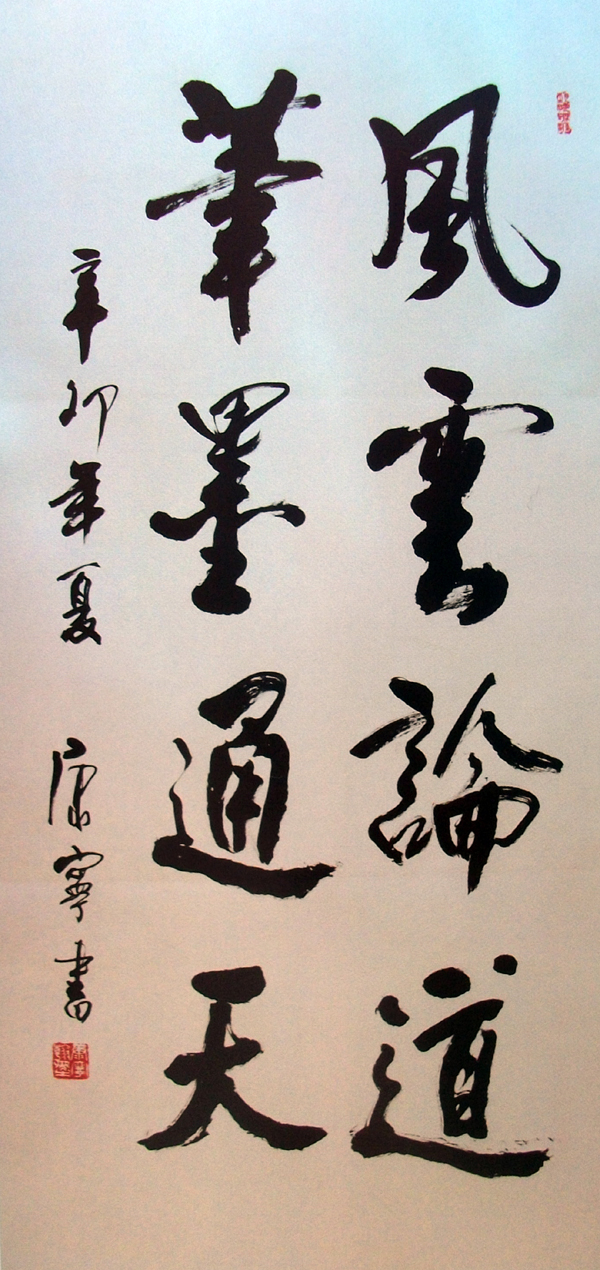 風雲論道
筆墨通天
辛卯年夏 康寧書